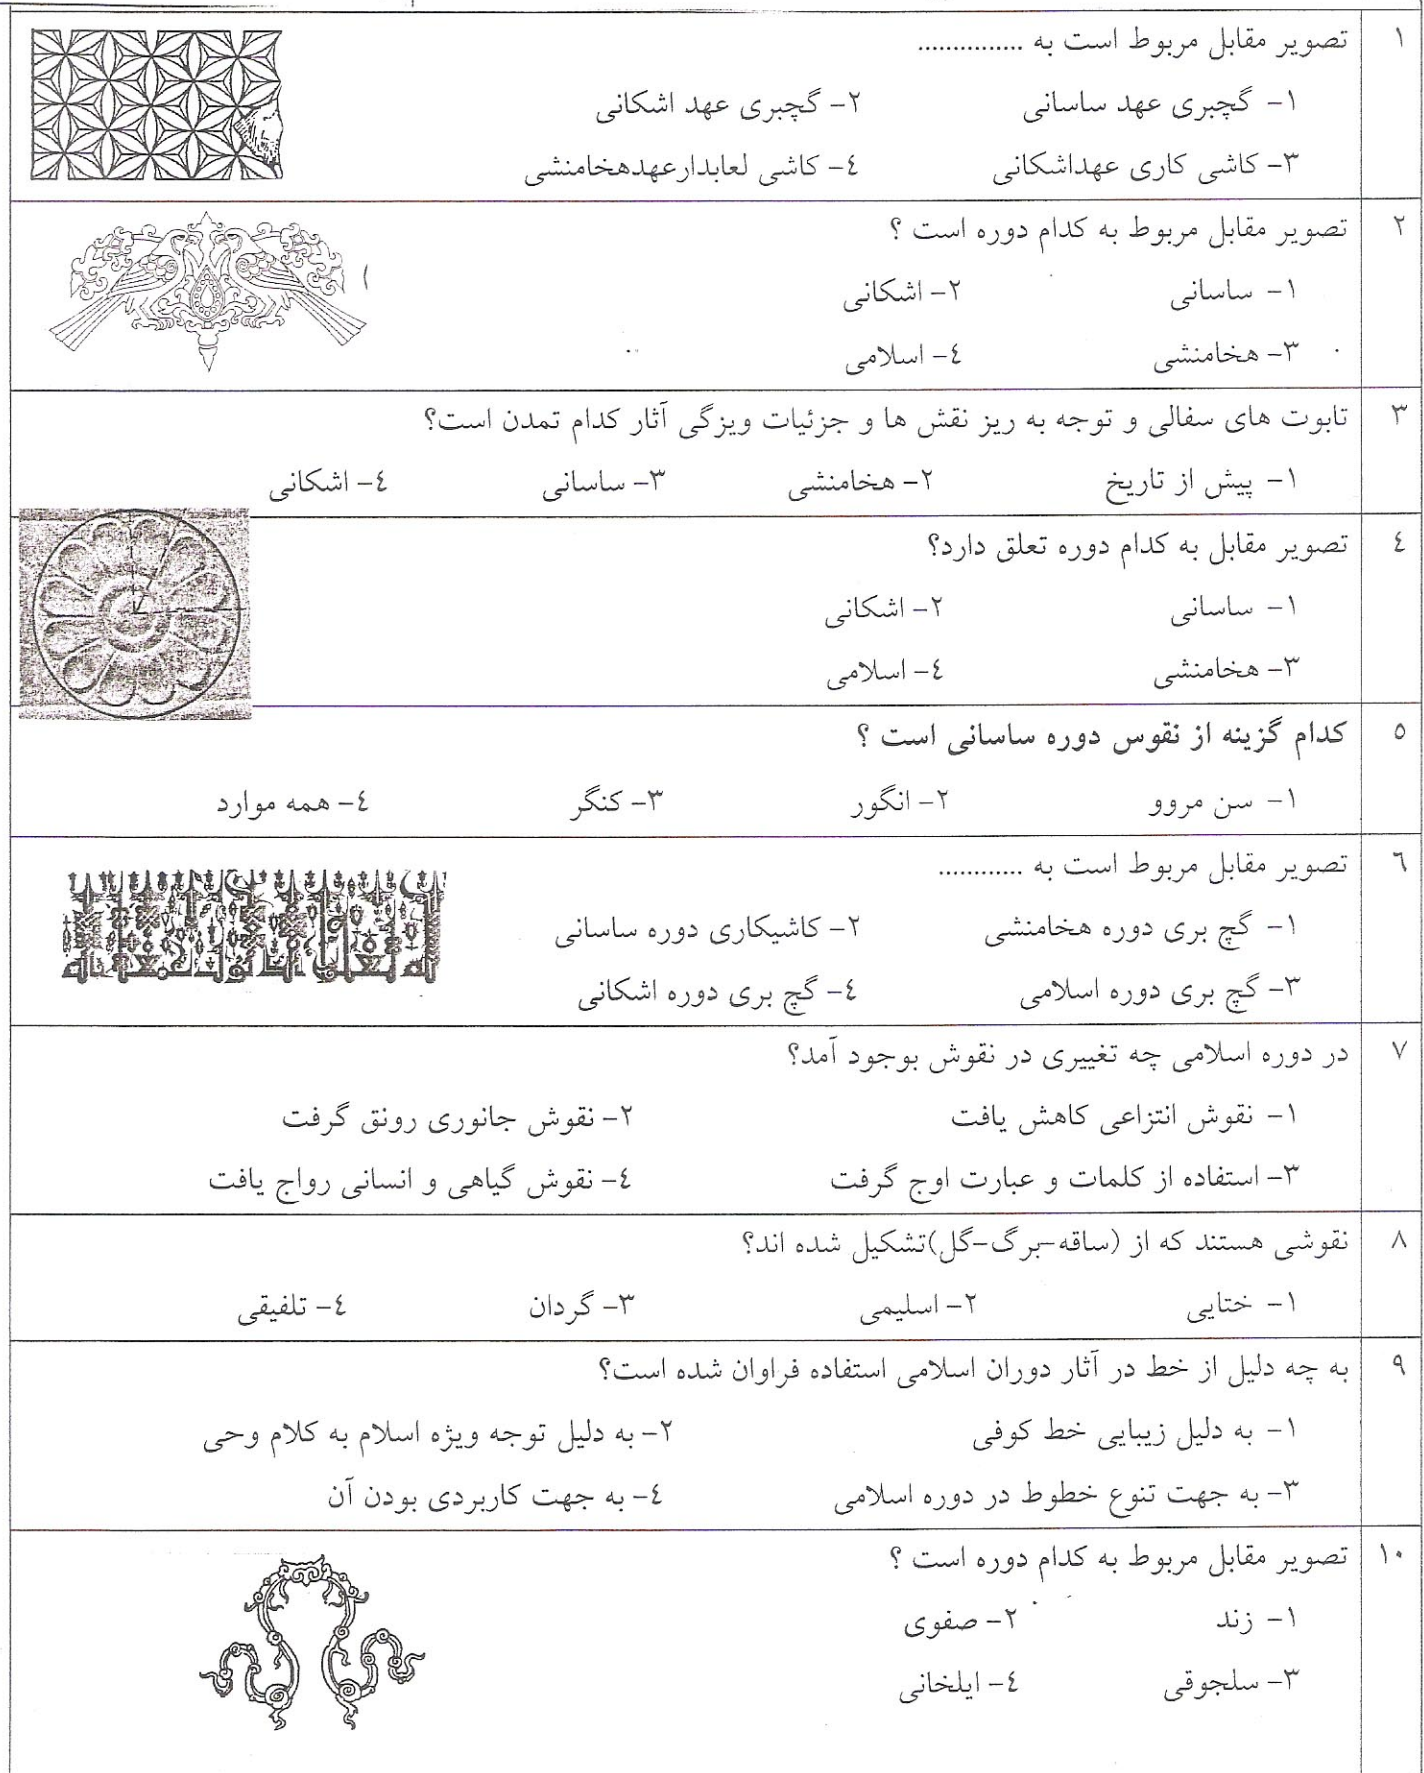 ۱ تصویر مقابل مربوط است به ...............
۱- گچبری عهد ساسانی ۲- گچبری عهد اشکانی
۳- کاشی کاری عهداشکانی ٤- کاشی لعابدارعهدهخامنشی
۲ تصویر مقابل مربوط به کدام دوره است ؟
۱- ساسانی ۲- اشکانی
۳- هخامنشی ٤- اسلامی
۳ تابوت های سفالی و توجه به ریز نقش ها و جزئیات ویزگی آثار کدام تمدن است؟
۱- پیش از تاریخ ۲- هخامنشی ۳- ساسانی ٤- اشکانی
٤ تصویر مقابل به کدام دوره تعلق دارد؟
۱- ساسانی ۲- اشکانی
۳- هخامنشی ٤- اسلامی
٥ کدام گزینه از نقوس دوره ساسانی است ؟
۱- سن مروو ۲- انگور ۳- کنگر ٤- همه موارد
٦ تصویر مقابل مربوط است به ............
۱- گچ بری دوره هخامنشی ۲- کاشیکاری دوره ساسانی
۳- گچ بری دوره اسلامی ٤- گچ بری دوره اشکانی
۷ در دوره اسلامی چه تغییری در نقوش بوجود آمد؟
۱- نقوش انتزاعی کاهش یافت ۲- نقوش جانوری رونق گرفت
۳- استفاده از کلمات و عبارت اوج گرفت ٤- نقوش گیاهی و انسانی رواج یافت
۸ نقوشی هستند که از (ساقه-برگ-گل)تشکیل شده اند؟
۱- ختایی ۲- اسلیمی ۳- گردان ٤- تلفیقی
۹ به چه دلیل از خط در آثار دوران اسلامی استفاده فراوان شده است؟
۱- به دلیل زیبایی خط کوفی ۲- به دلیل توجه ویژه اسلام به کلام وحی
۳- به جهت تنوع خطوط در دوره اسلامی ٤- به جهت کاربردی بودن آن
۱۰ تصویر مقابل مربوط به کدام دوره است ؟
۱- زند ۲- صفوی
۳- سلجوقی ٤- ایلخانی